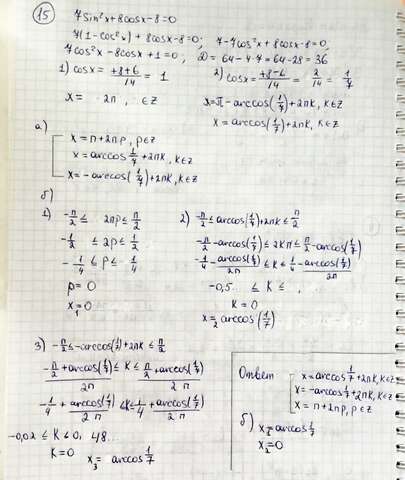 15
7sin²x+8cosx-8=0
7(1-cos²x)+8cosx-8=0; 7-7cos²x+8cosx-8=0,
7cos²x-8cosx+1=0; D=64-4·7=64-28=36
1) cosx = +8+6/14 = 1
2) cosx = +8-6/14 = 2/14 = 1/7
x= 2π , ∈Z
x=π-arccos(1/7)+2πk, k∈Z
x=arccos(1/7)+2πk, k∈Z
а)
x=π+2πp, p∈Z
x=arccos 1/7+2πk, k∈Z
x=-arccos(1/7)+2πk, k∈Z
б)
1) -π/2 ≤ 2πp ≤ π/2
-1/2 ≤ 2p ≤ 1/2
-1/4 ≤ p ≤ 1/4
p=0
x₁=0
2) -π/2 ≤ arccos(1/7)+2πk ≤ π/2
-π/2-arccos(1/7) ≤ 2kπ ≤ π/2-arccos(1/7)
-1/4-arccos(1/7)/2π ≤ k ≤ 1/4-arccos(1/7)/2π
-0,5... ≤ k ≤
k=0
x₂=arccos(1/7)
3) -π/2 ≤ -arccos(1/7)+2πk ≤ π/2
-π/2+arccos(1/7)/2π ≤ k ≤ π/2+arccos(1/7)/2π
-1/4+arccos(1/7)/2π ≤ k ≤ 1/4+arccos(1/7)/2π
-0,02 ≤ k ≤ 0,48...
k=0
x₃= arccos 1/7
Ответ
x=arccos 1/7+2πk, k∈Z
x=-arccos 1/7+2πk, k∈Z
x=π+2πp, p∈Z
б) x₁=arccos 1/7
x₂=0